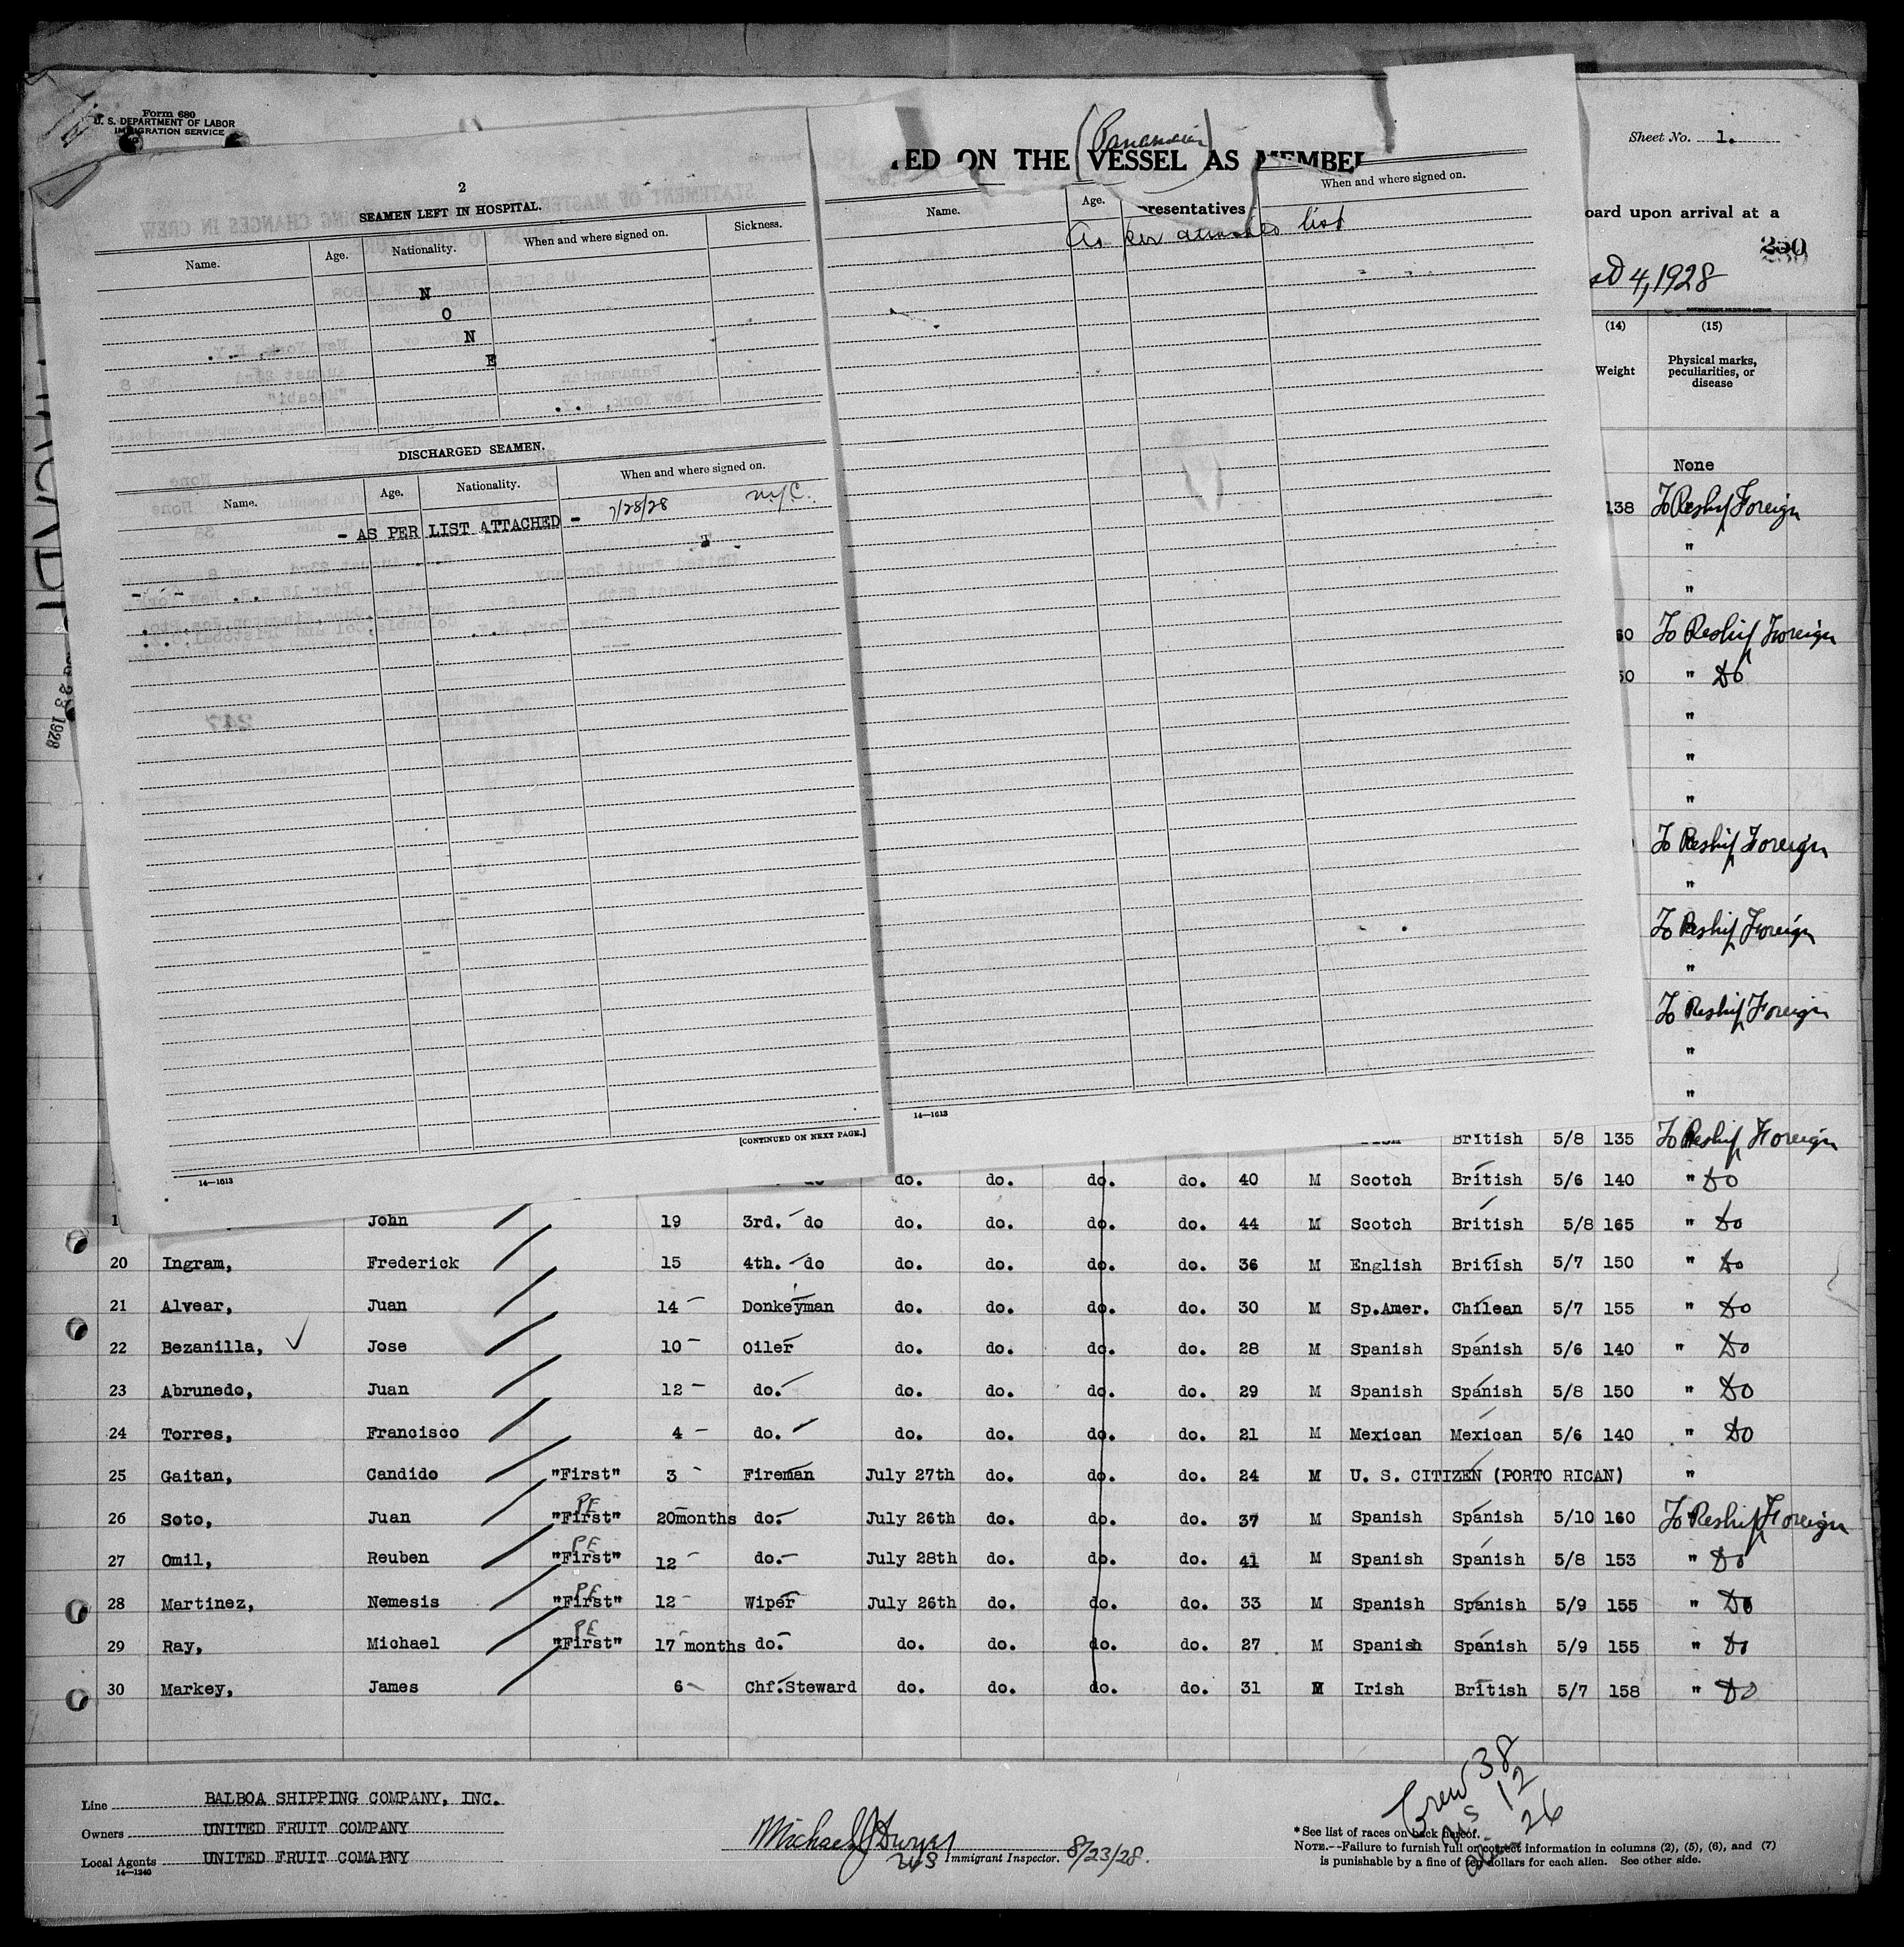 Form 680
U. S. DEPARTMENT OF LABOR
IMMIGRATION SERVICE
Sheet No. 1.
ED ON THE VESSEL AS MEMBE
(Panamanian)
representatives
oard upon arrival at a
250
4, 1928
2
SEAMEN LEFT IN HOSPITAL.
Name. Age. Nationality. When and where signed on. Sickness.
N
O
N
E
DISCHARGED SEAMEN.
Name. Age. Nationality. When and where signed on.
- AS PER LIST ATTACHED - 7/28/28 N.Y.C.
[CONTINUED ON NEXT PAGE.]
14—1613
Name. Age. When and where signed on.
As per attached list
14—1613
(14) (15)
Weight Physical marks, peculiarities, or disease
None
138 To Reship Foreign
"
"
60 To Reship Foreign
50 " Do
"
"
"
To Reship Foreign
"
To Reship Foreign
"
To Reship Foreign
"
"
British 5/8 135 To Reship Foreign
do do. do. do. do. 40 M Scotch British 5/6 140 " Do
1 John 19 3rd. do do. do. do. do. 44 M Scotch British 5/8 165 " Do
20 Ingram, Frederick 15 4th. do do. do. do. do. 36 M English British 5/7 150 " Do
21 Alvear, Juan 14 Donkeyman do. do. do. do. 30 M Sp.Amer. Chilean 5/7 155 " Do
22 Bezanilla, Jose 10 Oiler do. do. do. do. 28 M Spanish Spanish 5/6 140 " Do
23 Abrunedo, Juan 12 do. do. do. do. do. 29 M Spanish Spanish 5/8 150 " Do
24 Torres, Francisco 4 do. do. do. do. do. 21 M Mexican Mexican 5/6 140 " Do
25 Gaitan, Candido "First" 3 Fireman July 27th do. do. do. 24 M U. S. CITIZEN (PORTO RICAN) "
26 Soto, Juan PE "First" 20months do. July 26th do. do. do. 37 M Spanish Spanish 5/10 160 To Reship Foreign
27 Omil, Reuben PE "First" 12 do. July 28th do. do. do. 41 M Spanish Spanish 5/8 153 " Do
28 Martinez, Nemesis PE "First" 12 Wiper July 26th do. do. do. 33 M Spanish Spanish 5/9 155 " Do
29 Ray, Michael PE "First" 17 months do. do. do. do. do. 27 M Spanish Spanish 5/9 155 " Do
30 Markey, James 6 Chf.Steward do. do. do. do. 31 M Irish British 5/7 158 " Do
Crew 38
US 12
26
Line BALBOA SHIPPING COMPANY, INC.
Owners UNITED FRUIT COMPANY
Local Agents UNITED FRUIT COMAPNY
14—1240
Michael J Dwyer
Immigrant Inspector. 8/23/28.
* See list of races on back hereof.
NOTE.--Failure to furnish full or correct information in columns (2), (5), (6), and (7)
is punishable by a fine of ten dollars for each alien. See other side.